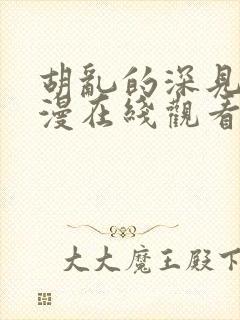 胡亂的深見
漫在綫觀看
大大魔王殿下